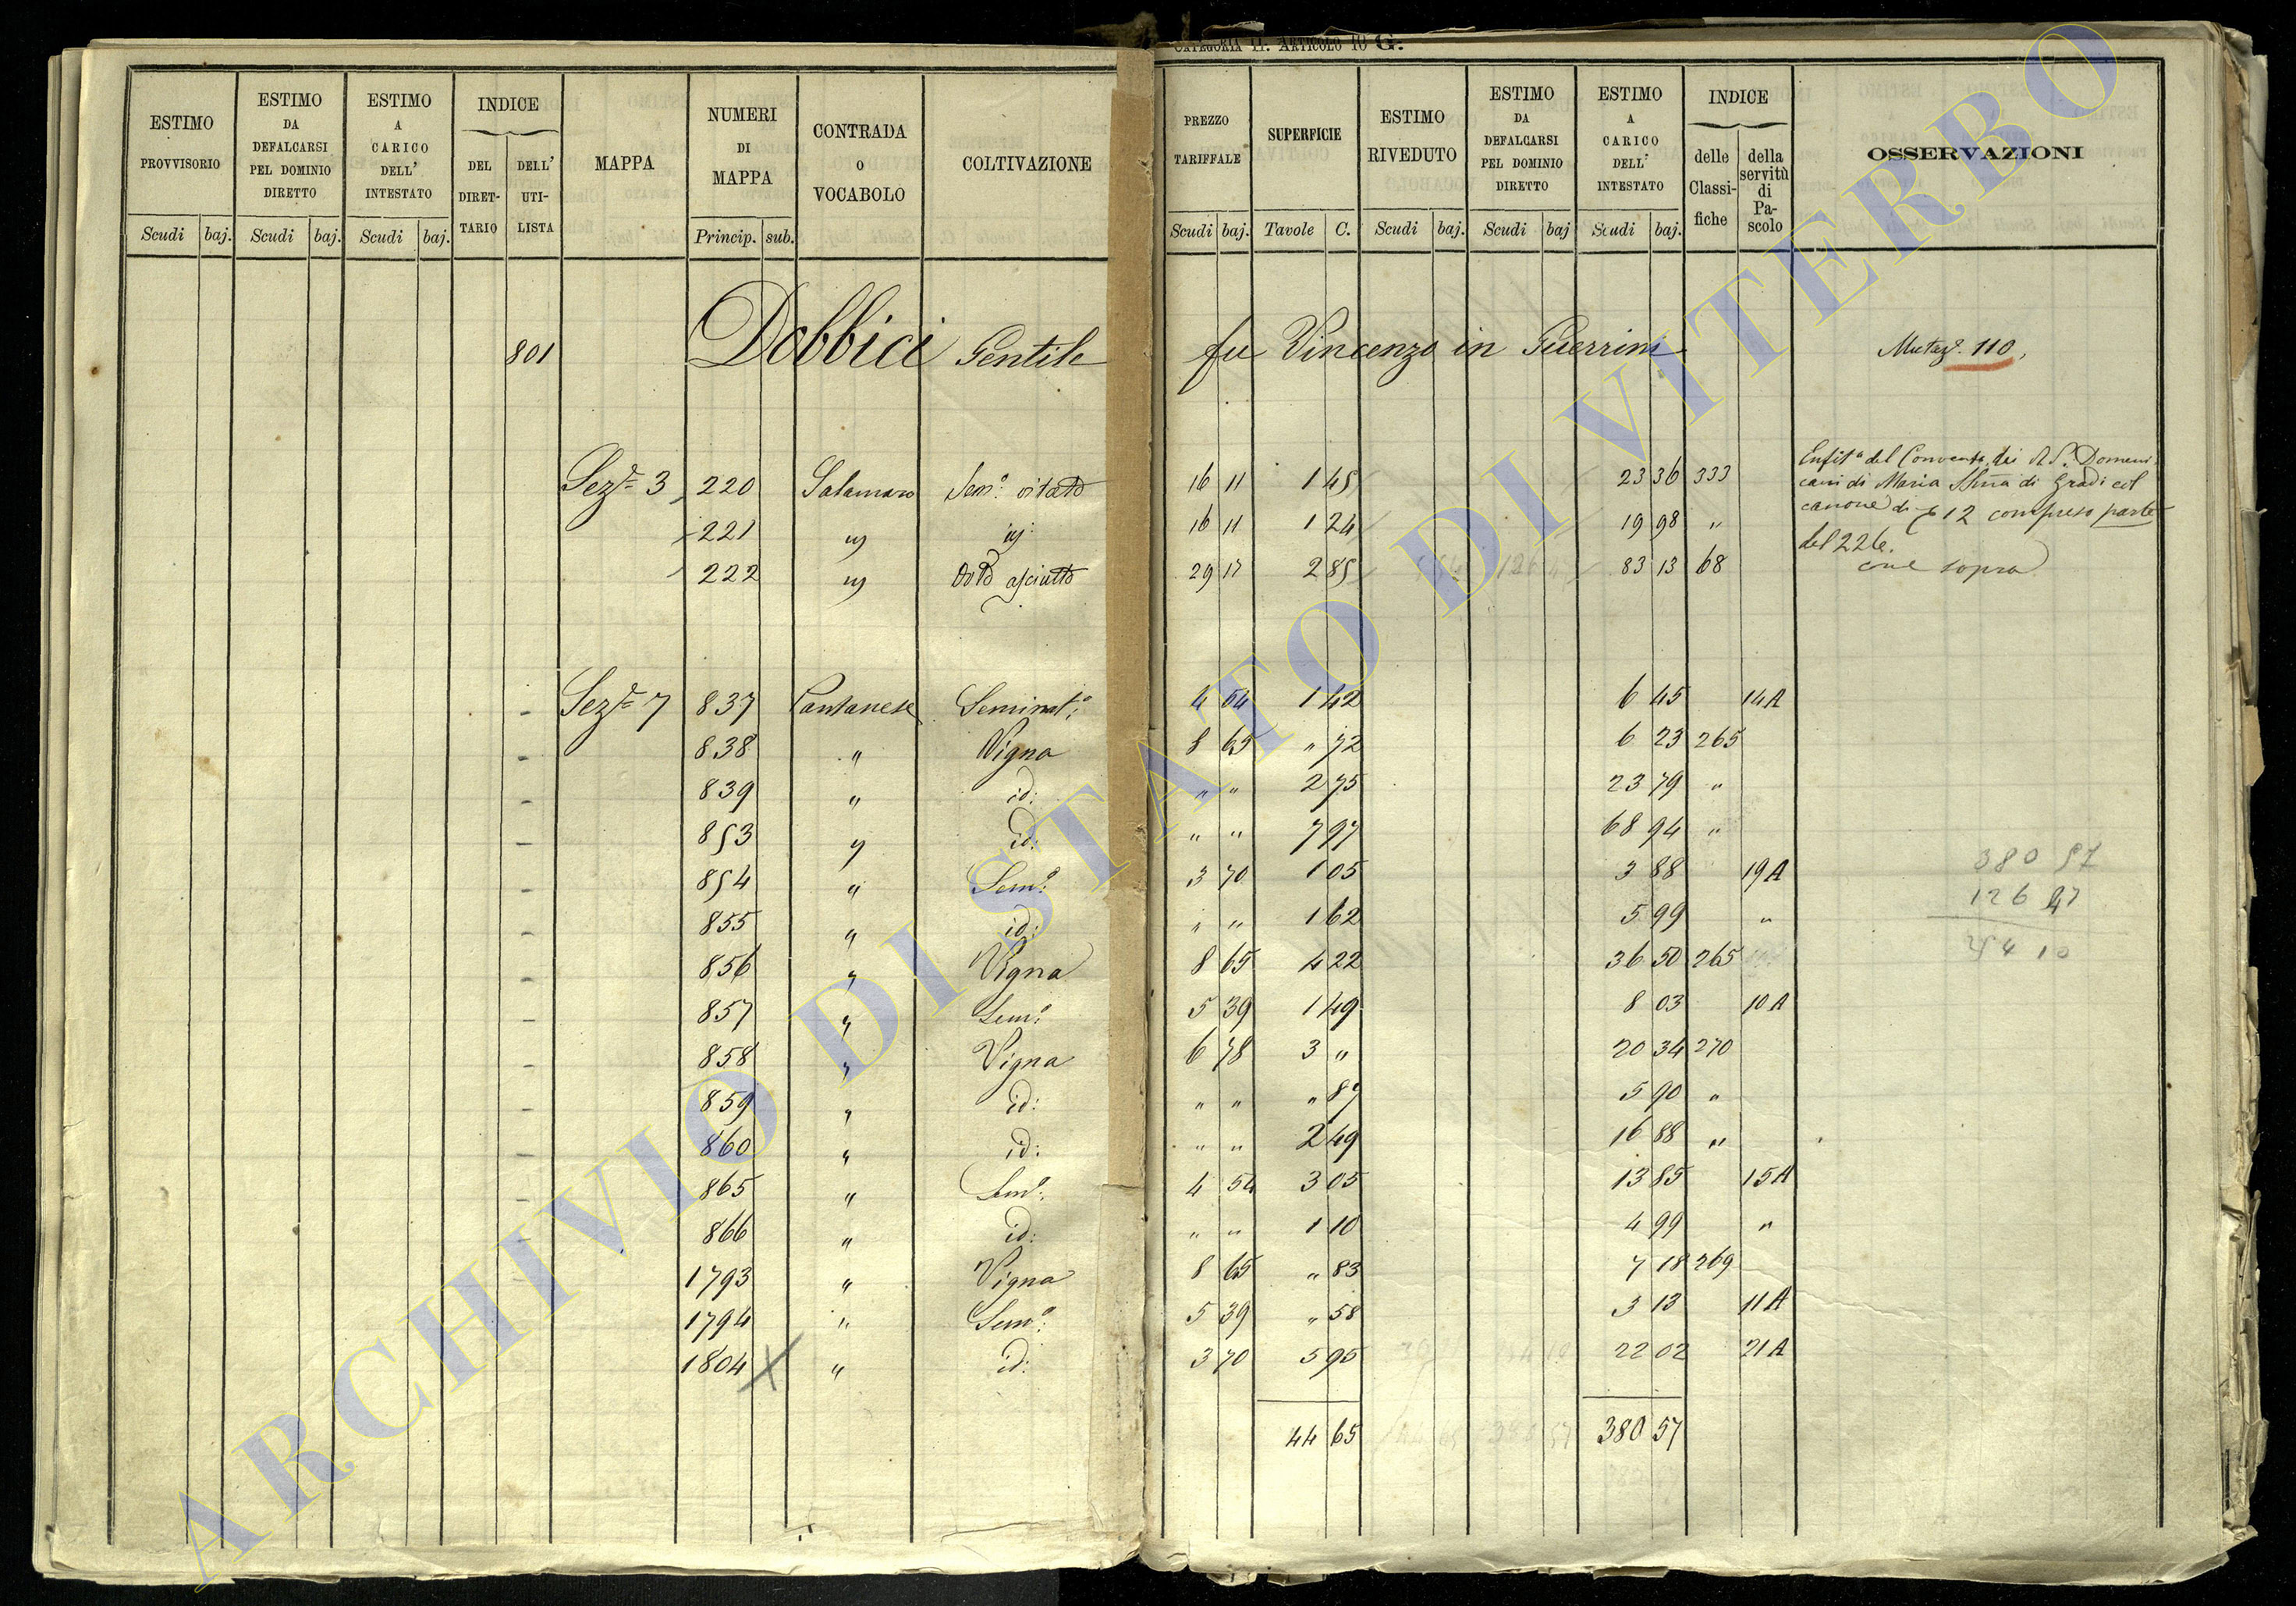 CATEGORIA II. ARTICOLO 10 G.
ESTIMO PROVVISORIO
ESTIMO DA DEFALCARSI PEL DOMINIO DIRETTO
ESTIMO A CARICO DELL' INTESTATO
INDICE
DEL DIRETTARIO
DELL' UTILISTA
MAPPA
NUMERI DI MAPPA
CONTRADA o VOCABOLO
COLTIVAZIONE
PREZZO TARIFFALE
SUPERFICIE
ESTIMO RIVEDUTO
ESTIMO DA DEFALCARSI PEL DOMINIO DIRETTO
ESTIMO A CARICO DELL' INTESTATO
INDICE
delle Classifiche
della servitù di Pascolo
OSSERVAZIONI
Scudi baj. Scudi baj. Scudi baj. Princip. sub. Scudi baj. Tavole C. Scudi baj. Scudi baj Scudi baj.
801 Dobbici Gentile fu Vincenzo in Guerrini Mutaz.e 110
Sez.e 3 220 Salamaro Sem.o vitato 16 11 1 45 23 36 333
221 " id: 16 11 1 24 19 98 "
222 " Orto asciutto 29 17 2 85 83 13 68
Enfit.a del Convento dei R.P. Domeni
cani di Maria SSma di Gradi col
canone di 12 compreso parte
del 226.
come sopra
Sez.e 7 837 Pantanese Seminat.o 4 54 1 42 6 45 14A
838 " Vigna 8 65 " 72 6 23 265
839 " id: " " 2 75 23 79 "
853 " id: " " 7 97 68 94 "
854 " Sem.o 3 70 1 05 3 88 19A
855 " id: " " 1 62 5 99 "
856 " Vigna 8 65 4 22 36 50 265
857 " Sem.o 5 39 1 49 8 03 10A
858 " Vigna 6 78 3 " 20 34 270
859 " id: " " " 87 5 90 "
860 " id: " " 2 49 16 88 "
865 " Sem.o 4 54 3 05 13 85 15A
866 " id: " " 1 10 4 99 "
1793 " Vigna 8 65 " 83 7 18 269
1794 " Sem.o 5 39 " 58 3 13 11A
1804 X " id: 3 70 5 95 22 02 21A
44 65 380 57
380 57
126 47
ARCHIVIO DI STATO DI VITERBO